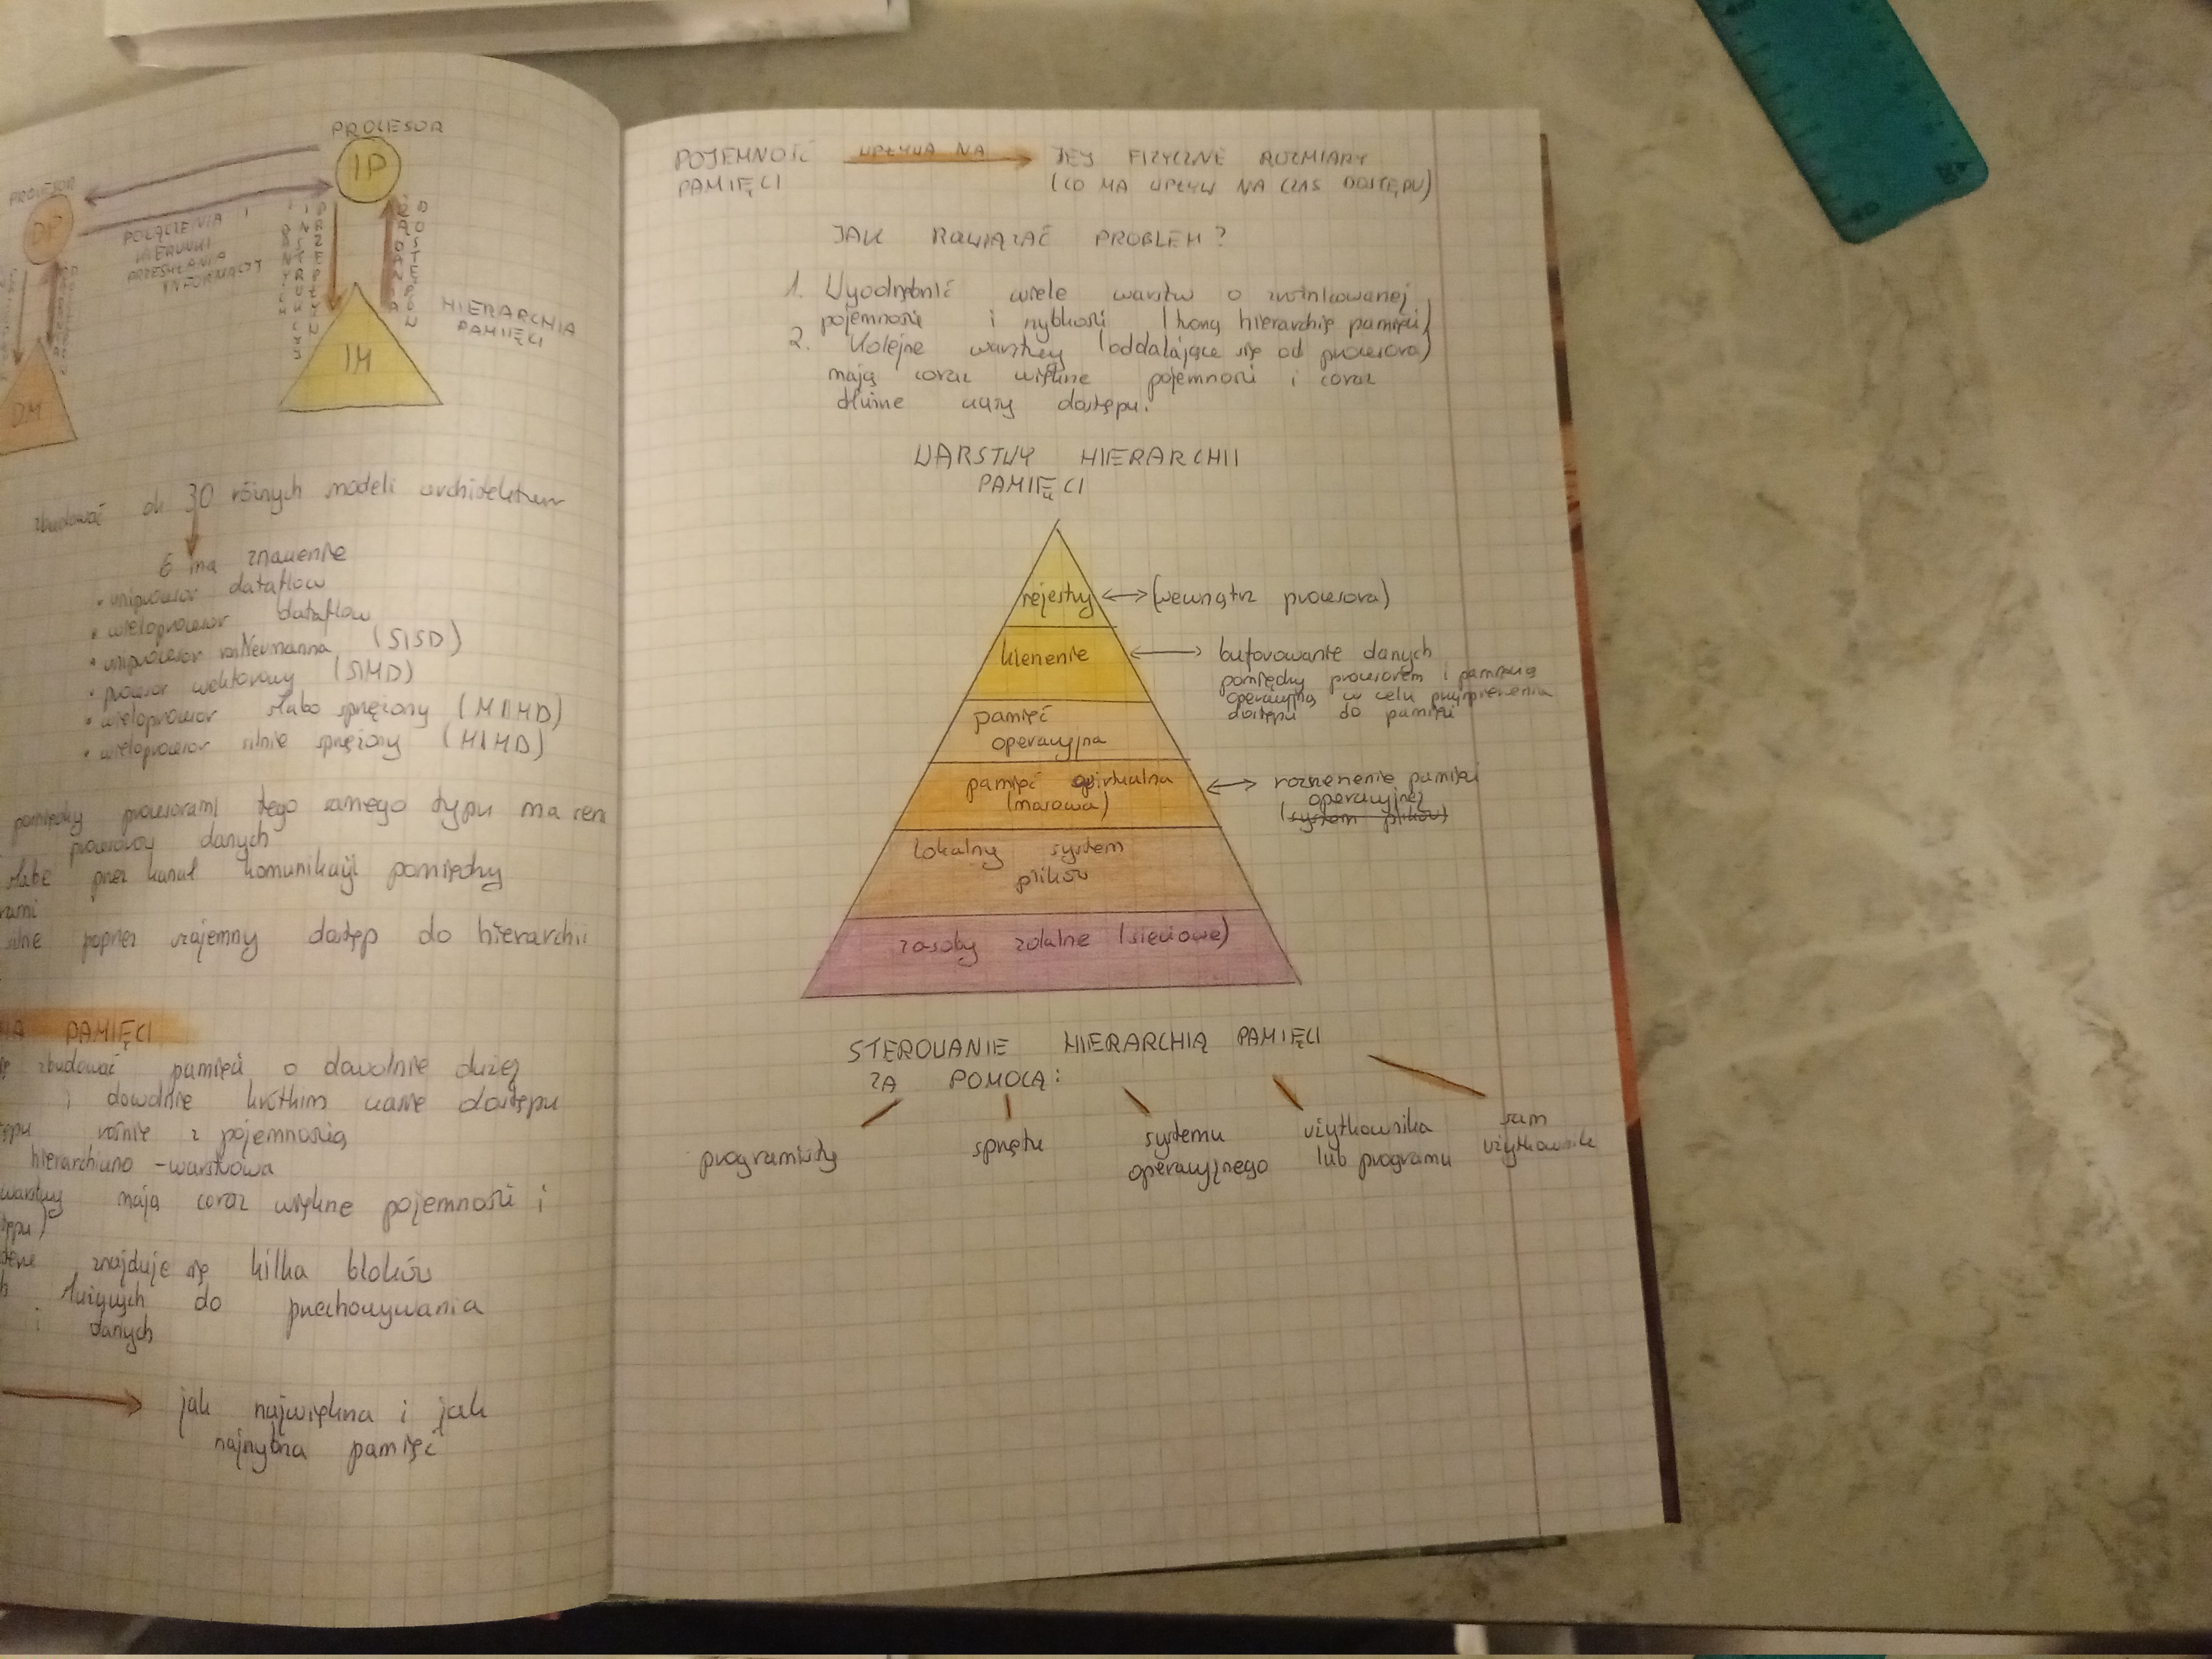 PROCESOR
IP
PROCESOR
DP
POŁĄCZENIA
KIERUNKI
PRZESYŁANIA
INFORMACJI
PRZEPŁYW
INSTRUKCJI
I DANYCH
ŻĄDANIA
DOSTĘPÓW
HIERARCHIA
PAMIĘCI
IM
DM
zbudować ok 30 różnych modeli architektur
6 ma znaczenie
• uniprocesor dataflow
• wieloprocesor dataflow
• uniprocesor vonNeumanna (SISD)
• procesor wektorowy (SIMD)
• wieloprocesor słabo sprzężony (MIMD)
• wieloprocesor silnie sprzężony (MIMD)
pomiędzy procesorami tego samego typu ma sens
procesory danych
słabe przez kanał komunikacji pomiędzy
silne poprzez wzajemny dostęp do hierarchii
PAMIĘCI
zbudować pamięci o dowolnie dużej
i dowolnie krótkim czasie dostępu
rośnie z pojemnością
hierarchiczno - warstwowa
warstwy mają coraz większe pojemności i
znajduje się kilka bloków
służących do przechowywania
i danych
jak największa i jak
najszybsza pamięć
POJEMNOŚĆ WPŁYWA NA JEJ FIZYCZNE ROZMIARY
PAMIĘCI (CO MA WPŁYW NA CZAS DOSTĘPU)
JAK ROZWIĄZAĆ PROBLEM?
1. Wyodrębnić wiele warstw o zróżnicowanej
pojemności i szybkości (tworzą hierarchię pamięci)
2. Kolejne warstwy (oddalające się od procesora)
mają coraz większe pojemności i coraz
dłuższe czasy dostępu.
WARSTWY HIERARCHII
PAMIĘCI
rejestry (wewnątrz procesora)
kieszenie buforowanie danych
pomiędzy procesorem i pamięcią
operacyjną w celu przyspieszenia
dostępu do pamięci
pamięć
operacyjna
pamięć wirtualna
(masowa)
rozszerzenie pamięci
operacyjnej
(system plików)
lokalny system
plików
zasoby zdalne (sieciowe)
STEROWANIE HIERARCHIĄ PAMIĘCI
ZA POMOCĄ:
programisty
sprzętu
systemu
operacyjnego
użytkownika
lub programu
sam
użytkownik